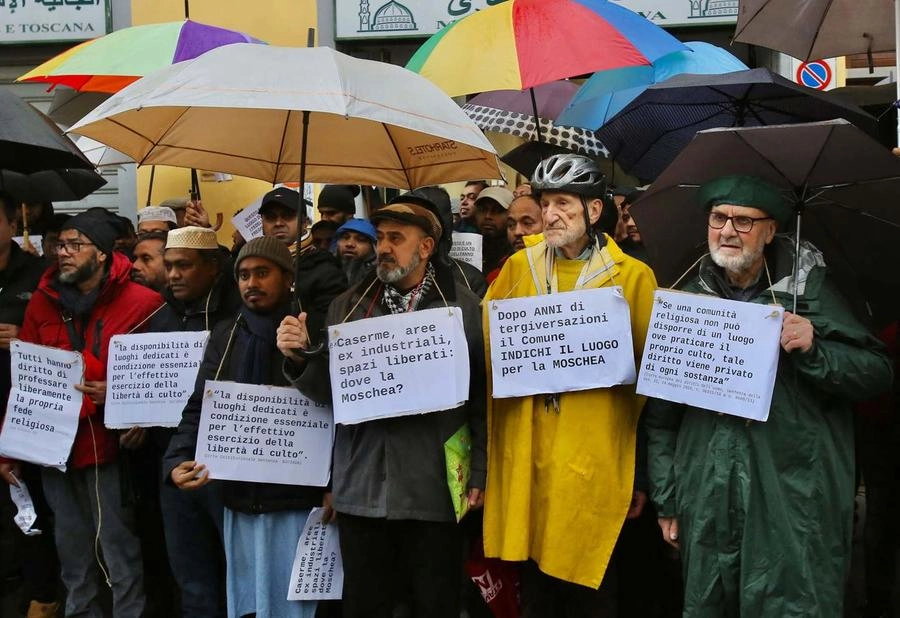 E TOSCANA
STARHOTELS
Tutti hanno
diritto di
professare
liberamente
la propria
fede
religiosa
"la disponibilità di
luoghi dedicati è
condizione essenziale
per l'effettivo
esercizio della
libertà di culto".
"la disponibilità di
luoghi dedicati è
condizione essenziale
per l'effettivo
esercizio della
libertà di culto".
Corte Costituzionale Sentenza
Caserme, aree
ex industriali,
spazi liberati:
dove la
Moschea?
Caserme, aree
ex industriali,
spazi liberati:
dove la
Moschea?
Dopo ANNI di
tergiversazioni
il Comune
INDICHI IL LUOGO
per la MOSCHEA
"Se una comunità
religiosa non può
disporre di un luogo
ove praticare il
proprio culto, tale
diritto viene privato
di ogni sostanza"